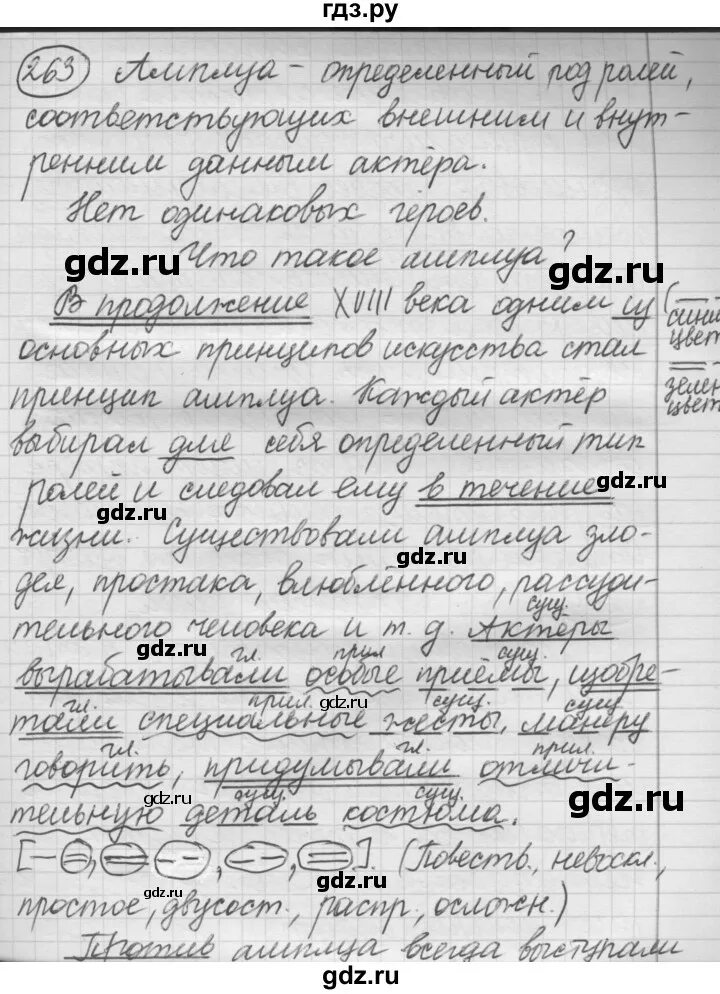 гдз.ру
263 Амплуа – определенный род ролей,
соответствующих внешним и внут-
ренним данным актёра.
Нет одинаковых героев.
gdz.ru gdz.ru
Что такое амплуа?
В продолжение XVIII века одним из
основных принципов искусства стал
принцип амплуа. Каждый актёр
выбирал для себя определенный тип
ролей и следовал ему в течение
жизни. Существовали амплуа зло-
дея, простака, влюблённого, рассуди-
тельного человека и т. д. Актёры
вырабатывали особые приёмы, изобре-
тали специальные жесты, манеру
говорить, придумывали отличи-
тельную деталь костюма.
(Повеств., невоскл.,
простое, двусост., распр., осложн.)
Против амплуа всегда выступали
синий
цвет
зелен
цвет
сущ.
гл. прил сущ.
гл. прил. сущ. сущ
гл. гл. прил.
сущ. сущ.
gdz.ru
gdz.ru
gdz.ru
gdz.ru
gdz.ru
gdz.ru
gdz.ru
gdz.ru
gdz.ru
gdz.ru
gdz.ru
gdz.ru
гдз.ру